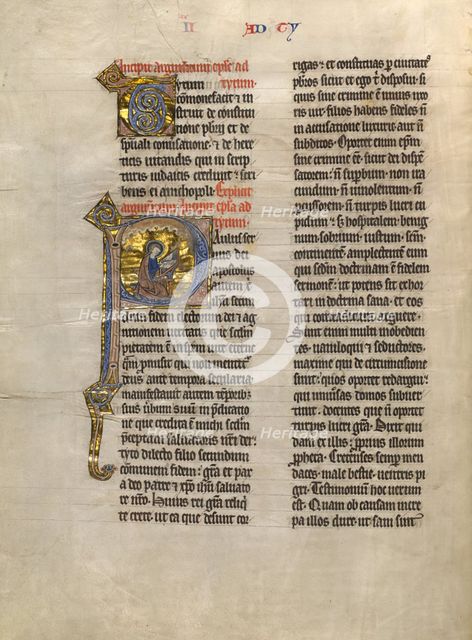 II AD TY
Incipit argumentum eple ad
tytum.
Tytum
cōmonefacit ⁊ in
struit de constitu
tione pbrii et de
spūali
ticis uitandis qui in scrip
turis iudaicis credunt ⁊ scri
bens ei a nichopoli. Explicit
argumentum Incipit epla ad
tytum.
Paulus ser
uus dei
apostolus
autem
ihu secun
dum fidem electorum dei ⁊ ag
nitionem ueritatis que secdm
pietatem ē in spem uite eterne
quam promisit qui non menti
deus ante tempora secularia
manifestauit autem temporibs
suis uerbum suum in predicatio
ne que credita ē michi secdm
preceptum saluatoris nri dei
tyto dilecto filio secundum
cōmunem fidem: grā et pax
a deo patre ⁊ xpo ihu saluato
re nro. Huius rei grā reliq
te crete. ut ea que desunt cor
rigas ⁊ et constituas p ciuitates
pbros sicut et ego tⁱ disposui. si
quis sine crimine ē unius uxo
ris uir filios habens fideles nō
in accusatione luxurie. aut nō
subditos. Oportet enim epm
sine crimine eē. sicut dei dispen
satorē: nō superbum. non ira
cundum. nō uinolentum. nō
percussorem. nō turpis lucri cu
pidum: ⁊ hospitalem. benig
num. sobrium. iustum. scm.
continentem. amplectentē eum
qui secdm doctrinam ē fidelem
sermonē: ut potens sit exhor
tari in doctrina sana. et eos
qui contradicunt arguere.
Sunt enim multi inobedien
tes. uaniloqui ⁊ seductores.
maxime qui de circumcisione
sunt: quos oportet redargui:
qui uniuersas domos subuer
tunt. docentes que nō oportet
turpis lucri grā. Dixit qui
dam ex illis: proprius illorum
ppheta. Cretenses semp men
daces. male bestie. uentris pi
gri. Testimonium hoc uerum
est. Quam ob causam incre
pa illos dure. ut sani sint
Heritage